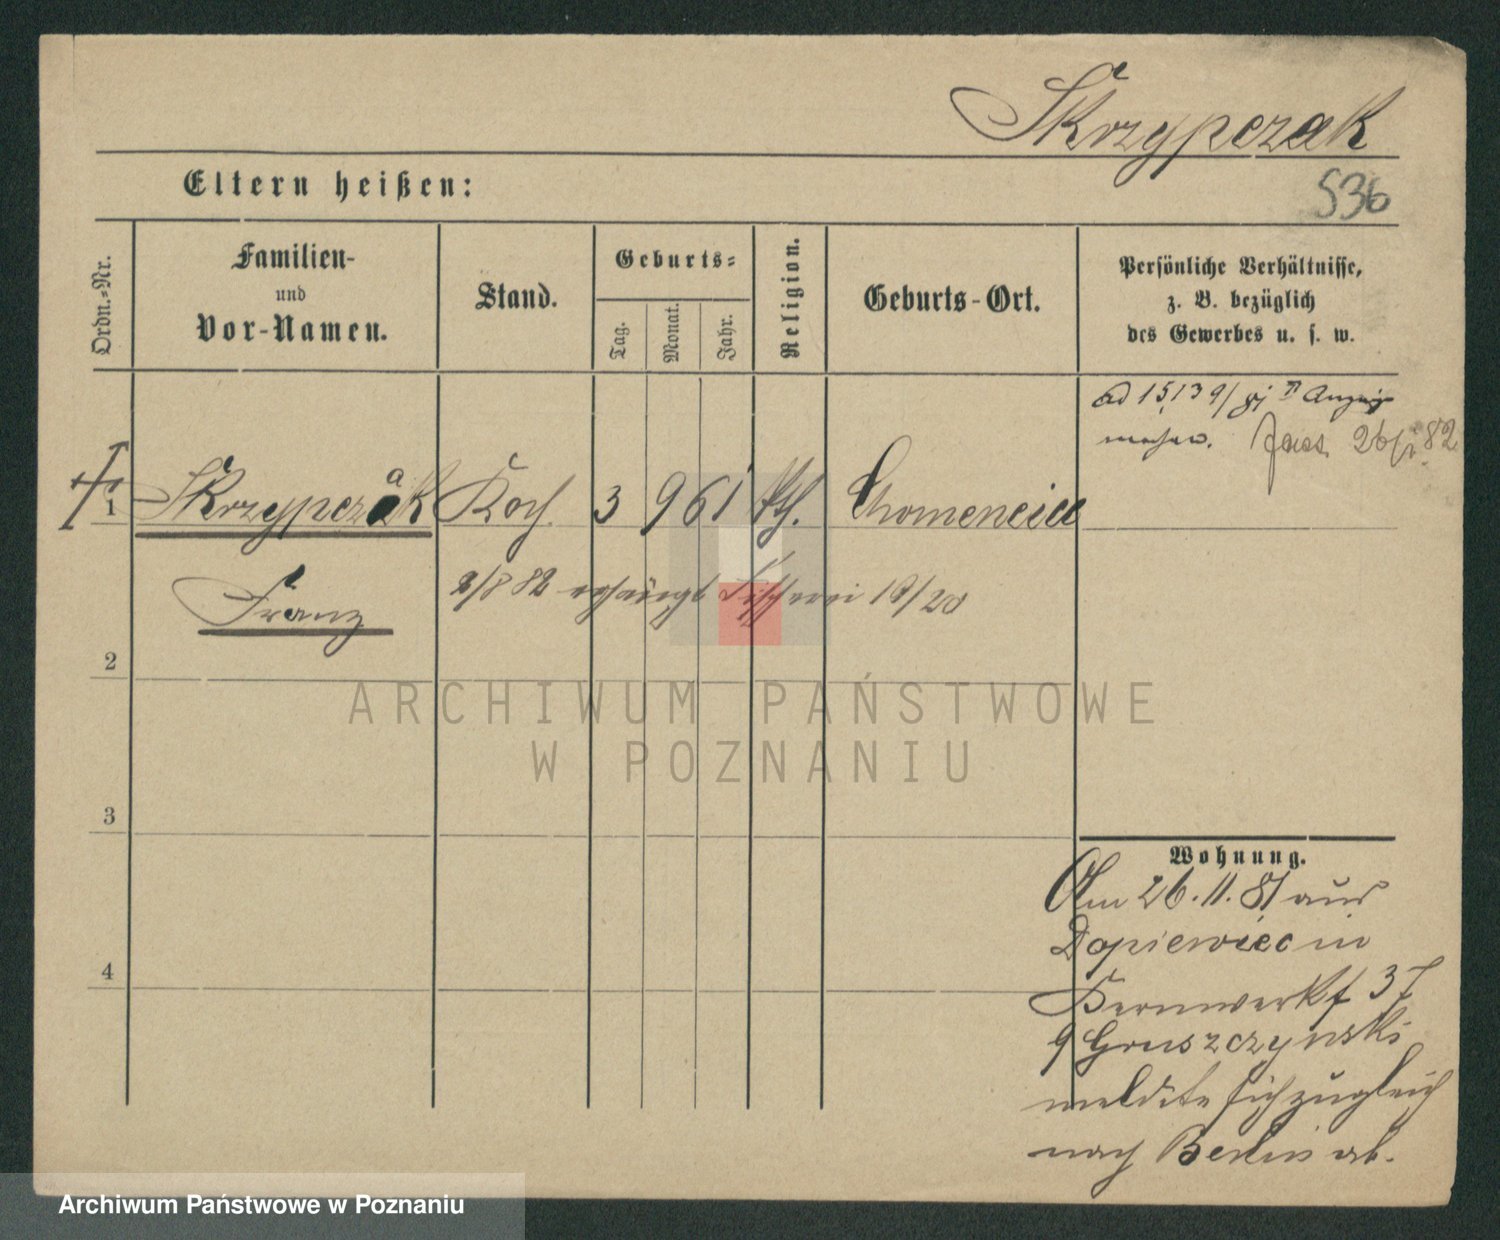 Skrzypczak
Eltern heißen:
536
Ordn.-Nr.
Familien-
und
Vor-Namen.
Stand.
Geburts-
Tag.
Monat.
Jahr.
Religion.
Geburts-Ort.
Persönliche Verhältnisse,
z. B. bezüglich
des Gewerbes u. s. w.
ad 15139/81
82
1 Skrzypczak Koch 3 9 61 kth.
Franz
2/8 82
2
ARCHIWUM PAŃSTWOWE
W POZNANIU
3
4
Wohnung.
Am 26.11.81 aus
Dopiewiec in
Bernwerkf 37
Gruszczynski
meldete sich zugleich
nach Berlin ab.
Archiwum Państwowe w Poznaniu